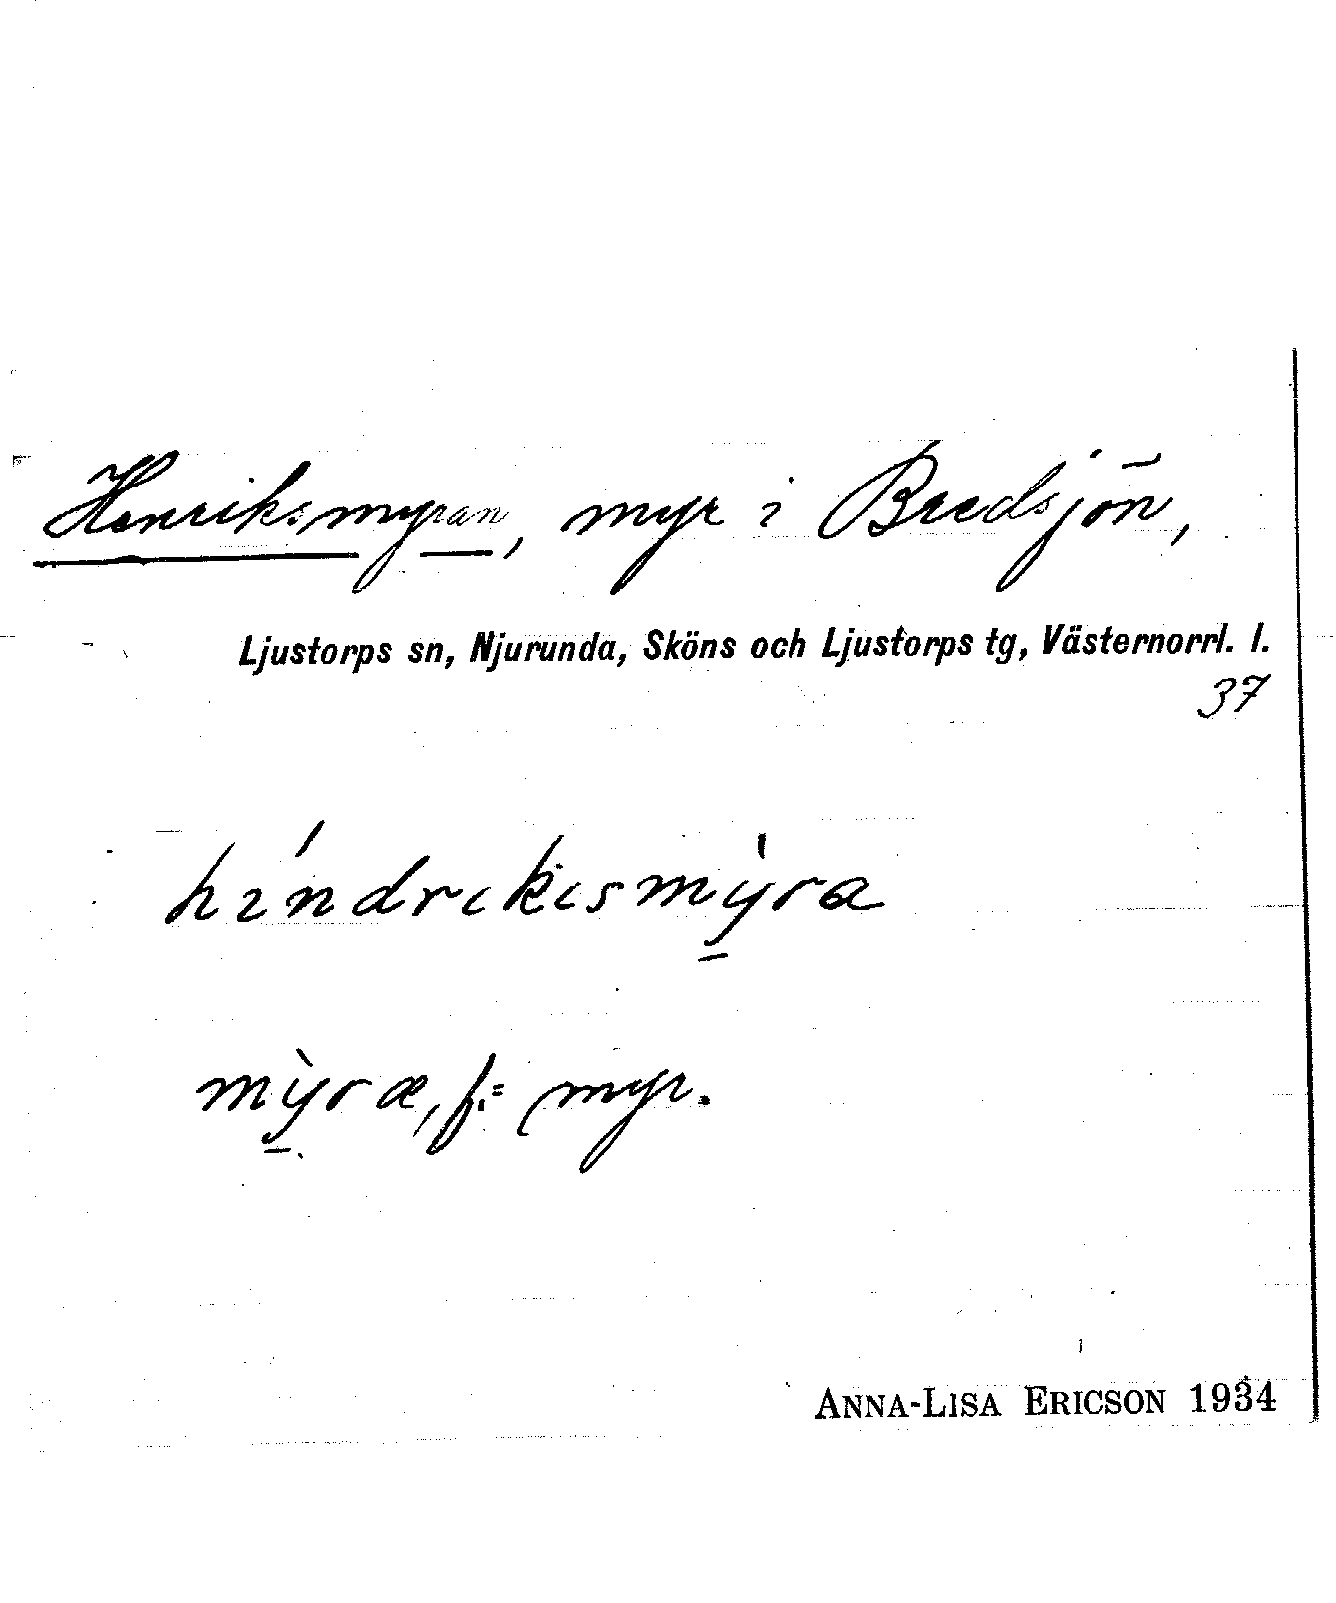 Henriksmyran, myr i Bredsjön,
Ljustorps sn, Njurunda, Sköns och Ljustorps tg, Västernorrl. l.
37
híndrikismỳra
mỳræ, f. = myr.
ANNA-LISA ERICSON 1934